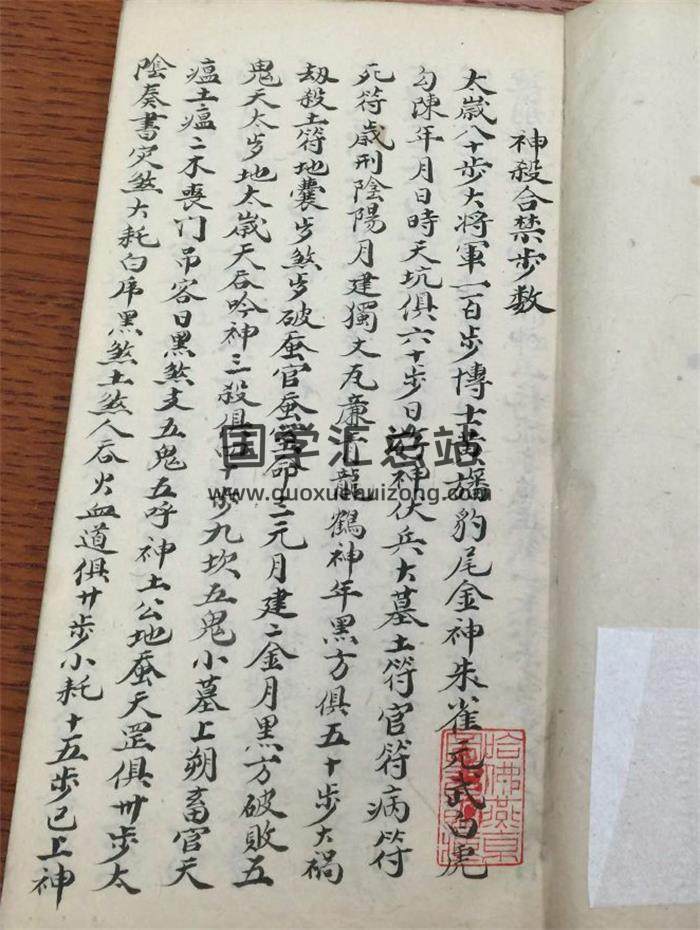 神殺合禁步数
太歲八十步大将軍一百步博士黄旛豹尾金神朱雀元武白虎
勾陳年月日時天坑俱六十步日神伏兵大墓土符官符病符
死符歲刑陰陽月建獨丈瓦廉龍鶴神年黑方俱五十步大禍
刼殺土符地囊歩煞歩破蚕官蚕命三元月建二金月黑方破敗五
鬼天太歩地太歲天吞吟神三殺俱四十步九坎五鬼小墓上朔畜官天
瘟土瘟二木喪门吊客日黑煞支五鬼五呼神土公地蚕天罡俱卅步太
陰奏書灾煞大耗白虎黑煞土煞人吞火血道俱廿步小耗十五步已上神
国学汇总站
www.guoxuehuizong.com
哈佛燕京